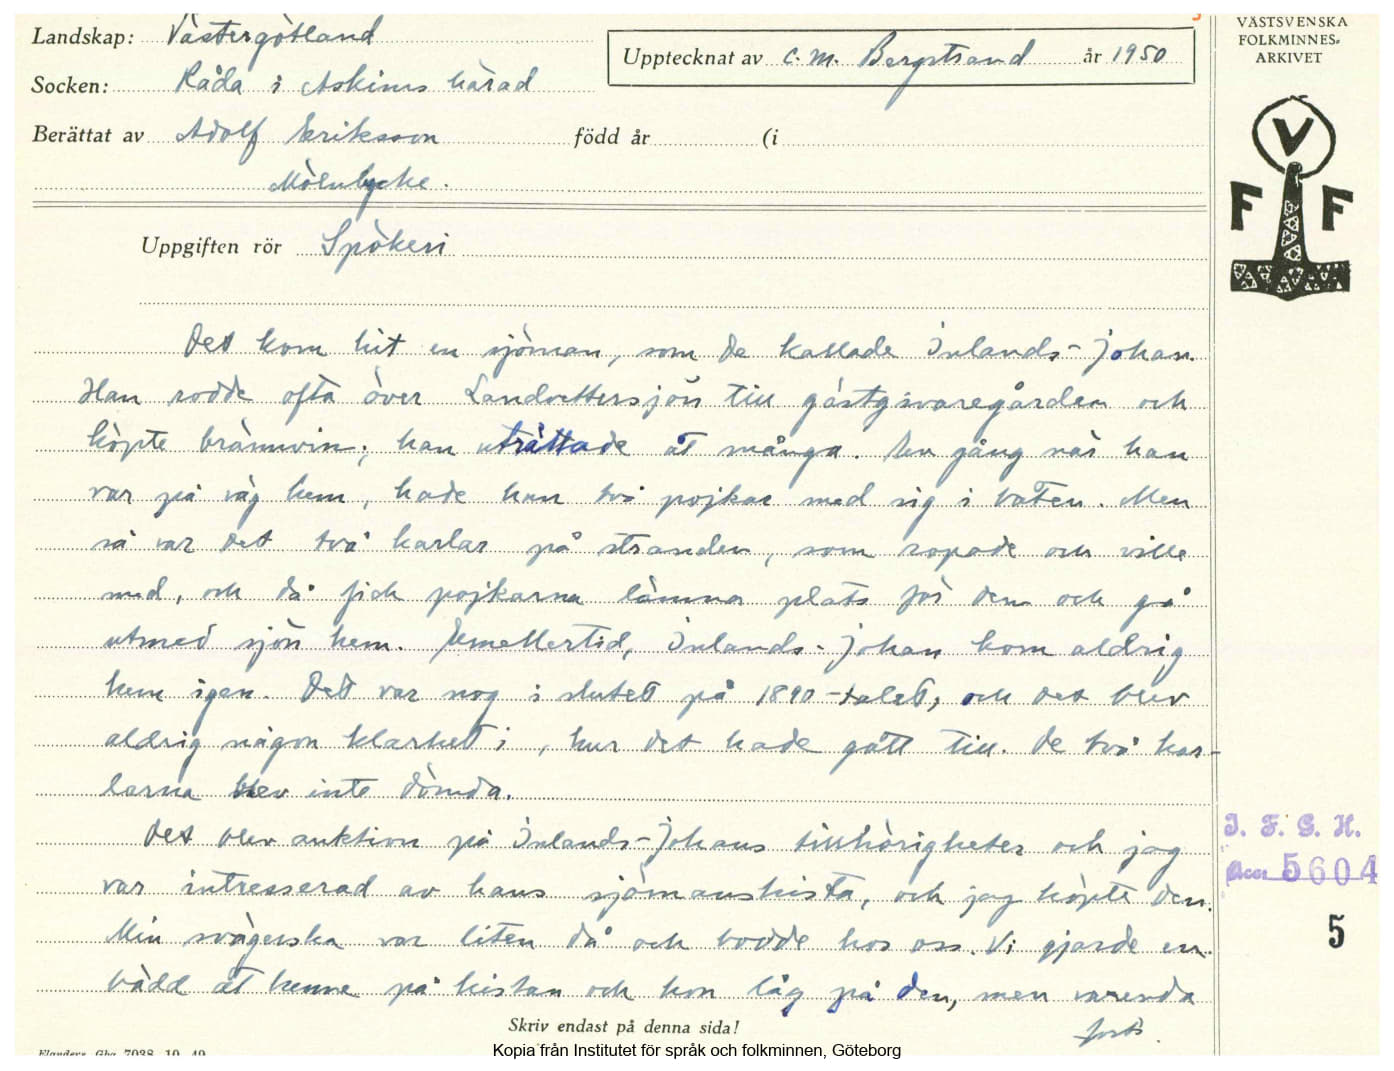 Landskap: Västergötland
Upptecknat av C. M. Bergstrand år 1950
Socken: Råda i Askims härad
Berättat av Adolf Eriksson född år (i
Mölnlycke.
VÄSTSVENSKA
FOLKMINNES-
ARKIVET
V
F F
Uppgiften rör Spökeri
Det kom hit en sjöman, som de kallade Inlands-Johan.
Han rodde ofta över Landvettersjön till gästgivaregården och
köpte brännvin; han uträttade åt många. En gång när han
var på väg hem, hade han två pojkar med sig i båten. Men
så var det två karlar på stranden, som ropade och ville
med, och då fick pojkarna lämna plats för dem och gå
utmed sjön hem. Emellertid, Inlands-Johan kom aldrig
hem igen. Det var nog i slutet på 1890-talet, och det blev
aldrig någon klarhet i, hur det hade gått till. De två kar-
larna blev inte dömda.
Det blev auktion på Inlands-Johans tillhörigheter och jag
var intresserad av hans sjömanskista, och jag köpte den.
Min svägerska var liten då och bodde hos oss. Vi gjorde en
bädd åt henne på kistan och hon låg på den, men varenda
forts.
I. F. G. H.
Acc. 5604
5
Skriv endast på denna sida!
Flanders Gbg 7038 10 49
Kopia från Institutet för språk och folkminnen, Göteborg